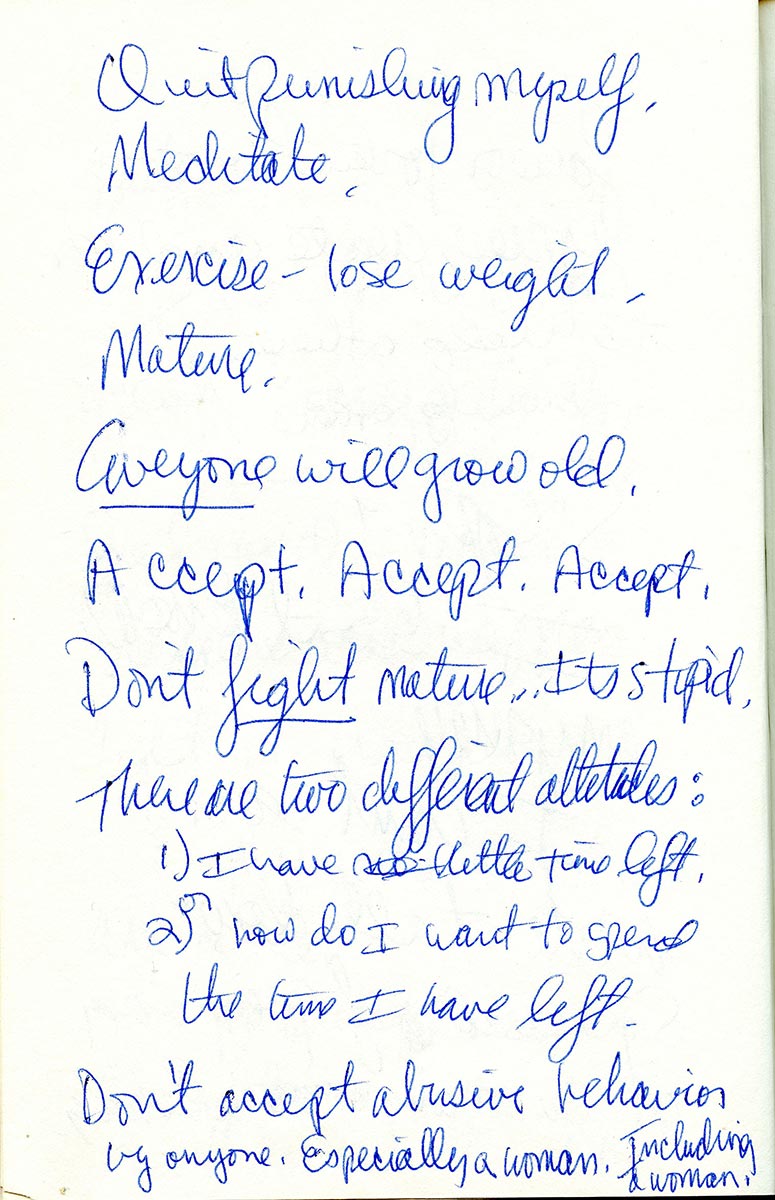 Quit punishing myself.
Meditate.
Exercise - lose weight.
Mature.
Everyone will grow old.
Accept. Accept. Accept.
Don't fight nature... Its stupid.
There are two different attitudes:
1) I have so little time left.
or
2) how do I want to spend
the time I have left.
Don't accept abusive behavior
by anyone. Especially a woman. Including
a woman.